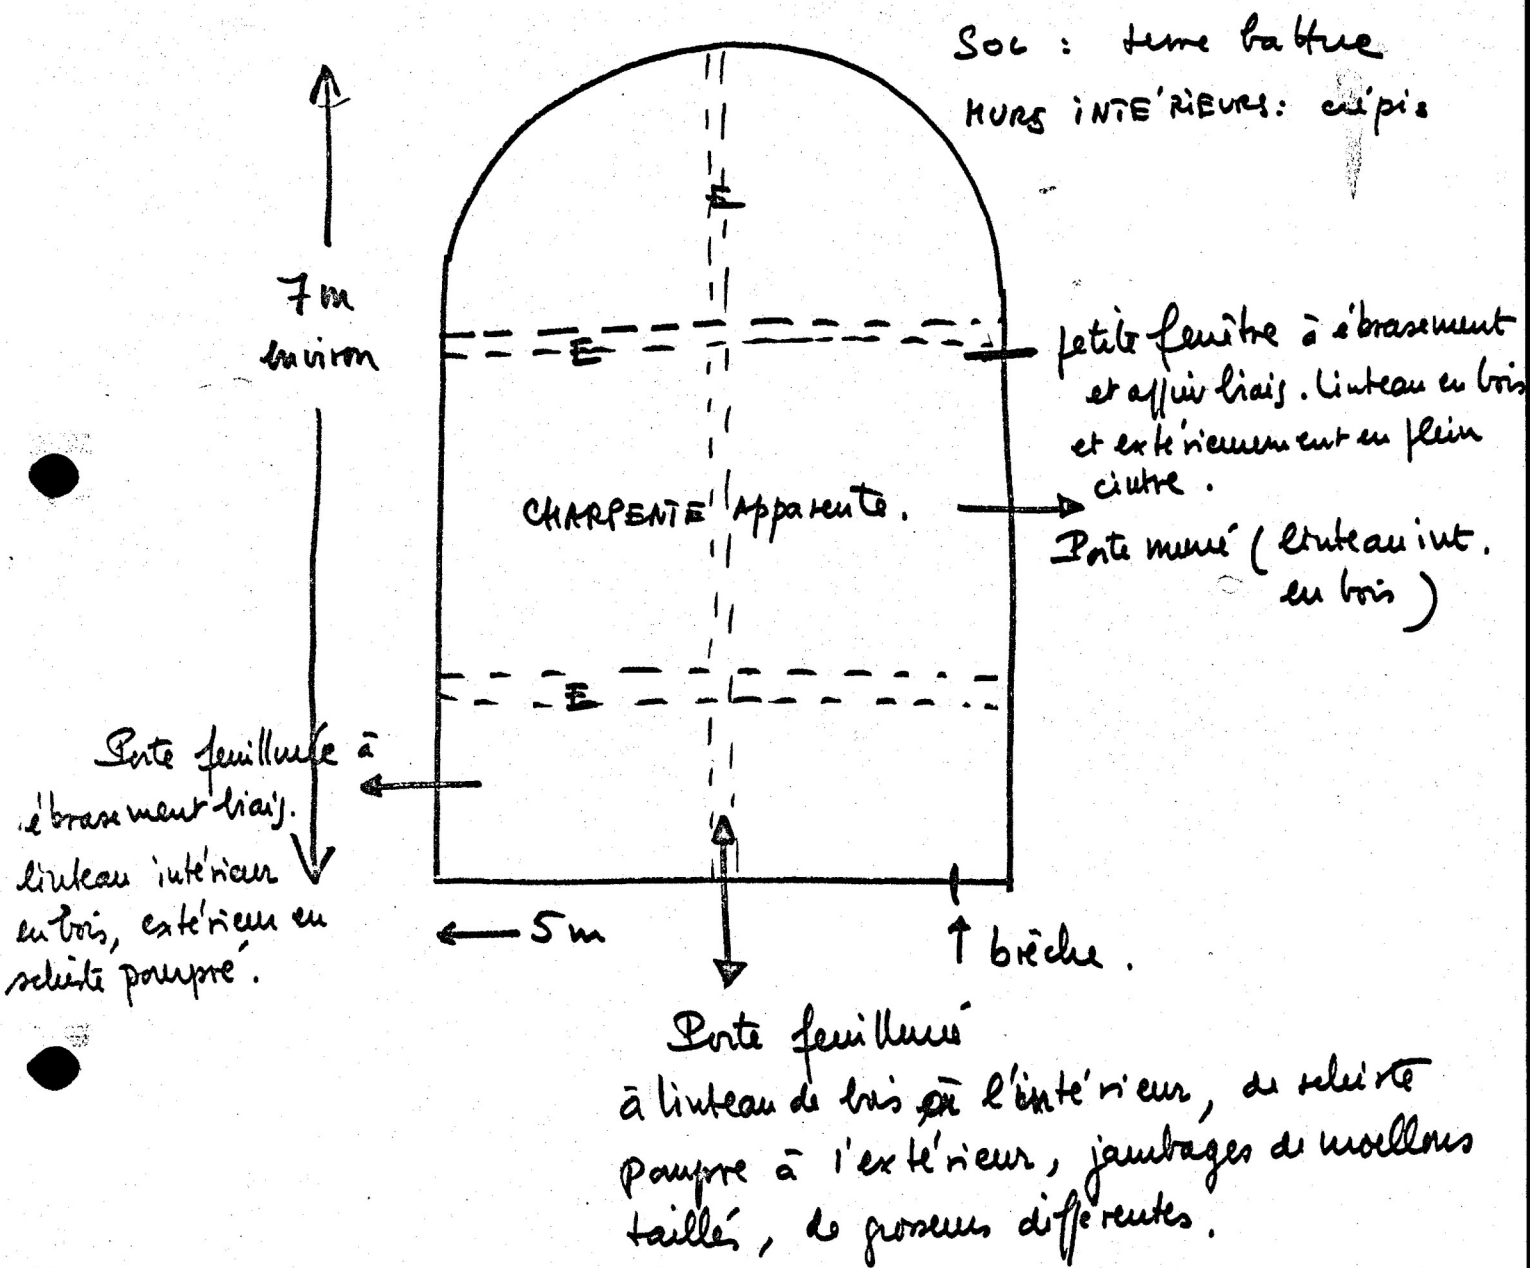 SOL : terre battue
MURS INTÉRIEURS : crépis
7 m
environ
E
E
petite fenêtre à ébrasement
et appui biais. Linteau en bois
et extérieurement en plein
cintre.
CHARPENTE Apparente.
Porte muré (linteau int.
en bois)
E
Porte feuilluré à
ébrasement biais.
linteau intérieur
en bois, extérieur en
schiste pourpré.
5 m
brèche.
Porte feuilluré
à linteau de bois à l'intérieur, de schiste
pourpre à l'extérieur, jambages de moellons
taillés, de grosseurs différentes.